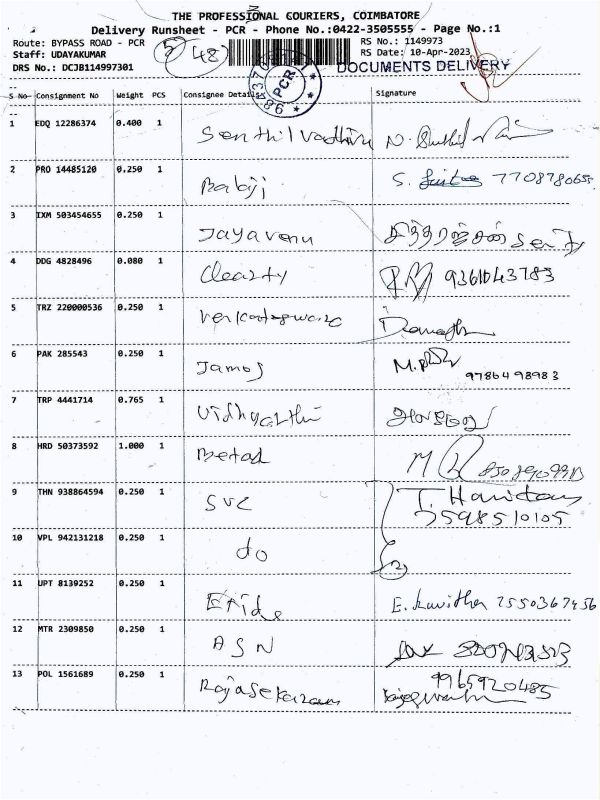 THE PROFESSIONAL COURIERS, COIMBATORE
Delivery Runsheet - PCR - Phone No.:0422-3505555 - Page No.:1
Route: BYPASS ROAD - PCR 5 48 RS No.: 1149973
Staff: UDAYAKUMAR RS Date: 10-Apr-2023
DRS No.: DCJB114997301 PCR DOCUMENTS DELIVERY
S No Consignment No Weight PCS Consignee Details Signature
1 EDQ 12286374 0.400 1
2 PRO 14485120 0.250 1 Balaji S.
3 IXM 503454655 0.250 1 Jayavenu
4 DDG 4828496 0.080 1 Clearty 9361043783
5 TRZ 220000536 0.250 1
6 PAK 285543 0.250 1 James M.
9786498983
7 TRP 4441714 0.765 1 Vidhyarthi
8 HRD 50373592 1.000 1 M
9 THN 938864594 0.250 1 SVC T.
7598510105
10 VPL 942131218 0.250 1 do 2
11 UPT 8139252 0.250 1 E. Kavitha 7550367456
12 MTR 2309850 0.250 1 ASN
13 POL 1561689 0.250 1 Rajasekaran 9965920485